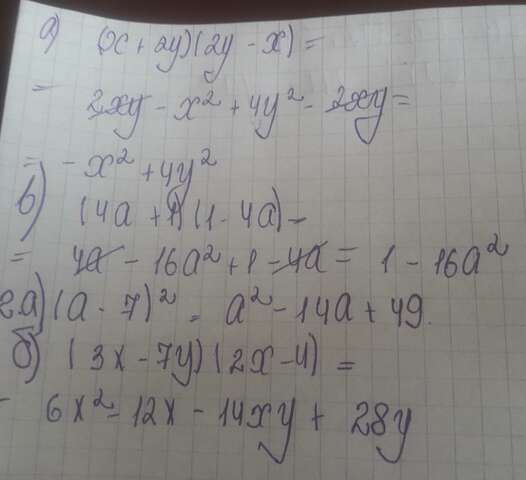 а) (x + 2y)(2y - x) =
= 2xy - x² + 4y² - 2xy =
= - x² + 4y²
в) (4a + 1)(1 - 4a) -
= 4a - 16a² + 1 - 4a = 1 - 16a²
2а) (a - 7)² = a² - 14a + 49.
б) (3x - 7y)(2x - 4) =
- 6x² - 12x - 14xy + 28y